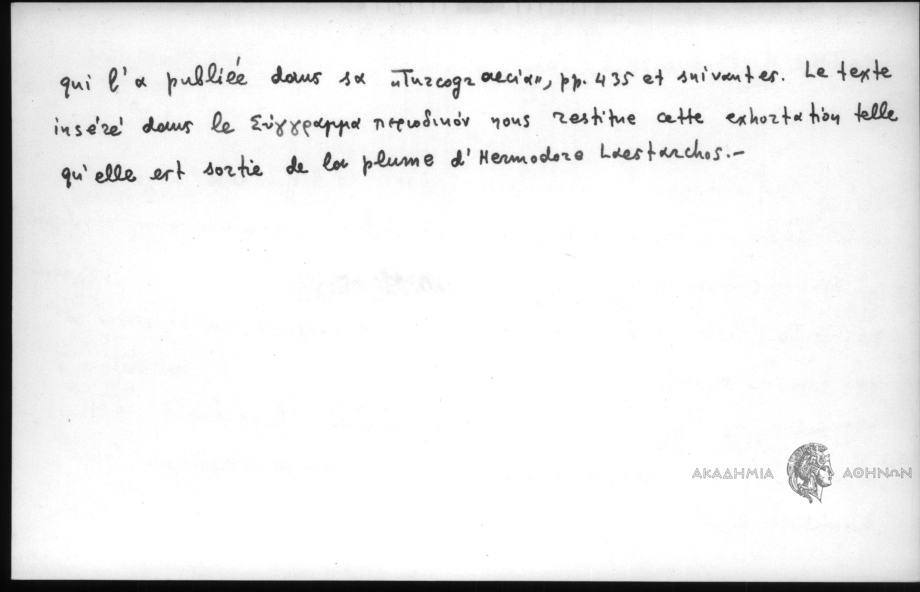 qui l'a publiée dans sa „Turcograecia“, pp. 435 et suivantes. Le texte
inséré dans le Σύγγραμμα περιοδικόν nous restitue cette exhortation telle
qu'elle est sortie de la plume d'Hermodore Laestarchos.-
ΑΚΑΔΗΜΙΑ ΑΘΗΝΩΝ